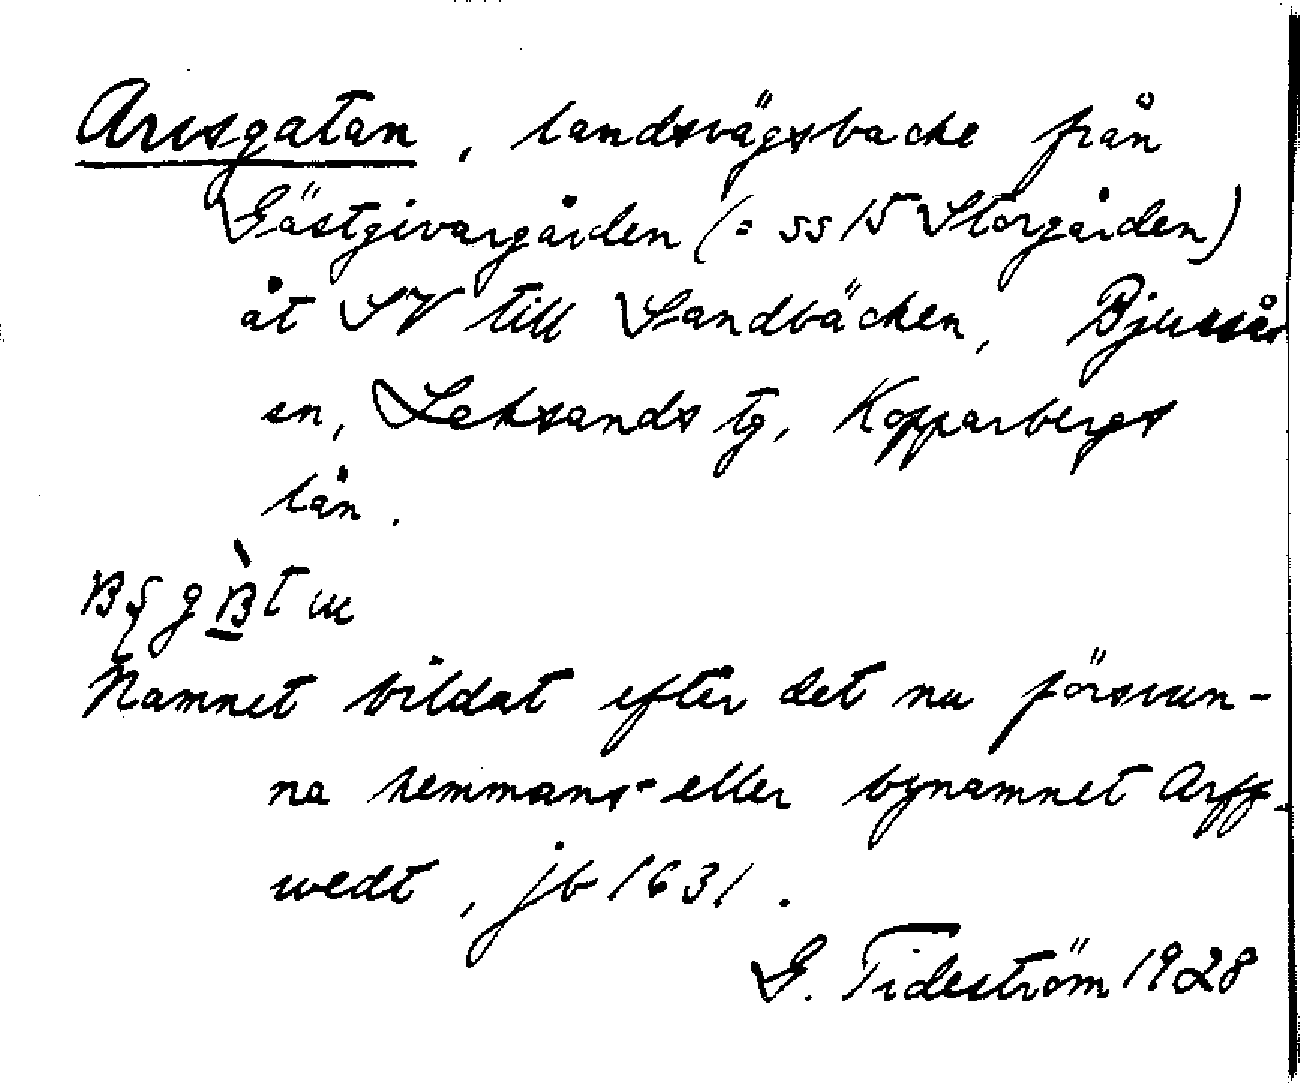 Arvsgatan, landsvägsbacke från
Gästgivargården (= ss 15 Storgården)
åt SV till Sandbäcken, Bjursås
sn, Leksands tg, Kopparbergs
län.
Namnet bildat efter det nu försvun-
na hemmans- eller bynamnet Arff-
wedt, jb 1631.
G. Tideström 1928